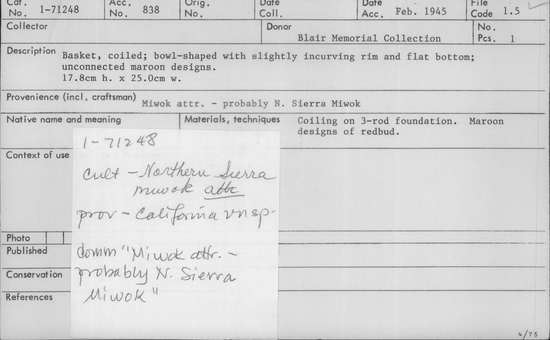 Cat. No. 1-71248 Acc. No. 838 Orig. No. Date Coll. Date Acc. Feb. 1945 File Code 1.5
Collector Donor No.
Blair Memorial Collection Pcs. 1
Description Basket, coiled; bowl-shaped with slightly incurving rim and flat bottom;
unconnected maroon designs.
17.8cm h. x 25.0cm w.
Provenience (incl. craftsman) Miwok attr. - probably N. Sierra Miwok
Native name and meaning Materials, techniques Coiling on 3-rod foundation. Maroon
designs of redbud.
Context of use
Photo
Published
Conservation
References
1-71248
cult - Northern Sierra
miwok attr
prov - California unsp.
domm "Miwok attr. -
probably N. Sierra
Miwok"
4/75